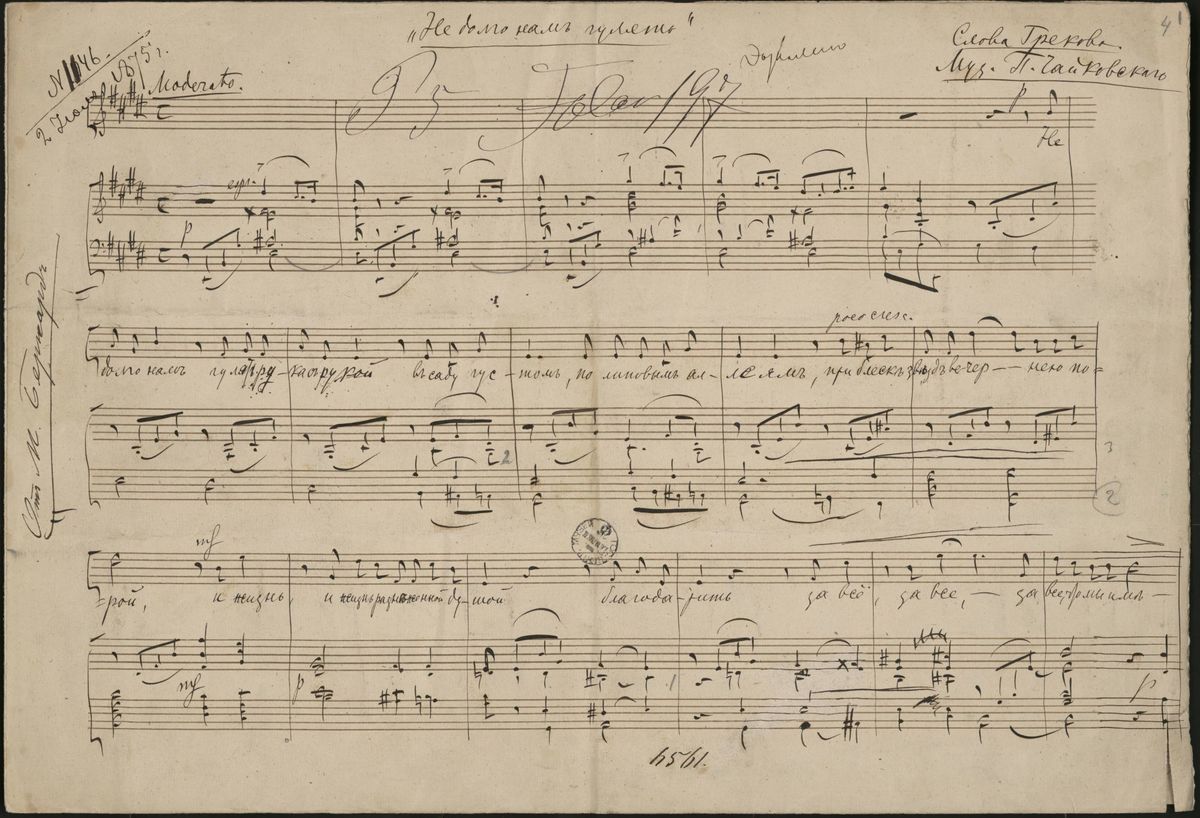 „Не долго намъ гулять“
Слова Грекова.
Муз. П. Чайковскаго
N 1146.
2 Июля 1875 г.
Moderato.
p
Не
p
poco cresc.
долго намъ гулять рука съ рукой въ саду густомъ, по липовымъ аллеямъ, при блескѣ звѣздъ вечернею по=
2
3
2
Отъ М. Бернардъ
mf
=рой, и жизнь, и жизнь разнѣженной душой благодарить за всё, за все, — за все, что мы имѣ—
mf
p
p
4561.